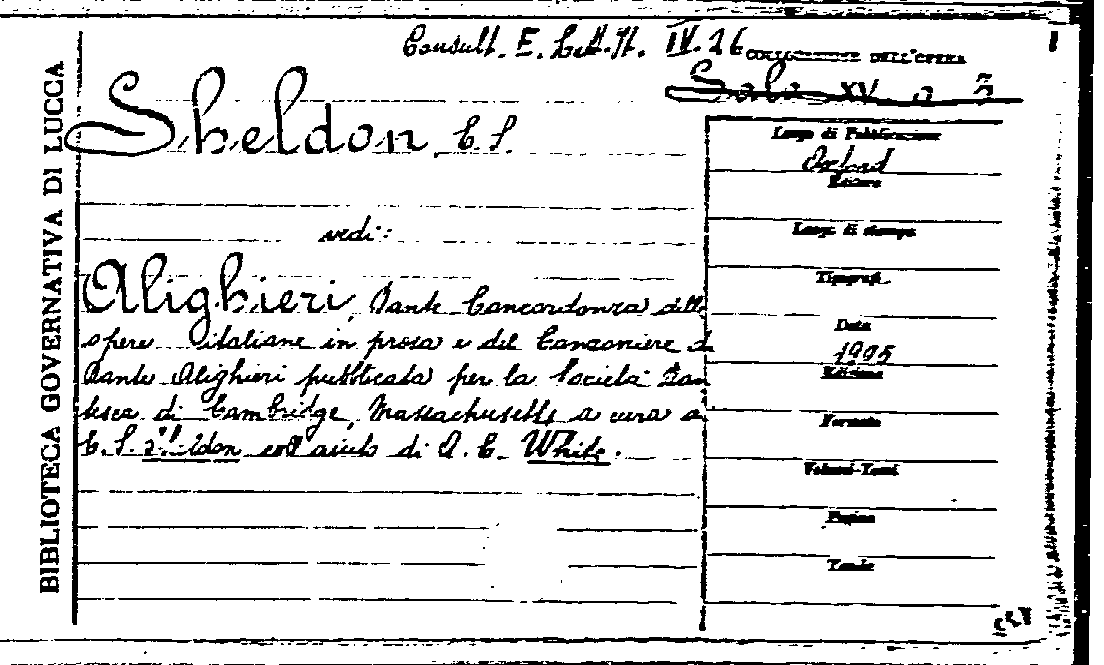 Consult. E. Lett. It. IV. 26
COLLOCAZIONE DELL'OPERA
Sala XV a 3
BIBLIOTECA GOVERNATIVA DI LUCCA
Sheldon, E. S.
vedi:
Alighieri, Dante Concordanza delle
opere italiane in prosa e del Canzoniere di
Dante Alighieri pubblicata per la Società Dan
tesca di Cambridge, Massachusetts a cura di
E. S. Sheldon coll'aiuto di A. C. White.
Luogo di Pubblicazione
Oxford
Editore
Luogo di stampa
Tipografi
Data
1905
Edizione
Formato
Volumi-Tomi
Pagine
Tavole